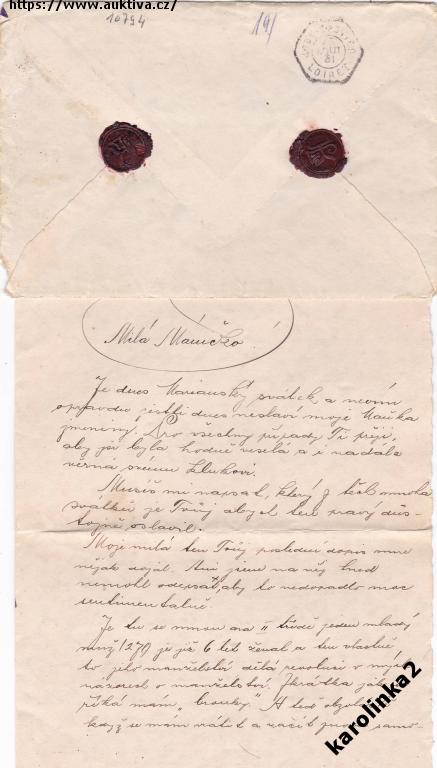 https://www.auktiva.cz/
10794
19/
LOIRET
Milá Máničko!
Je dnes Marianský svátek, a nevím
opravdu jestli dnes neslaví moje Mařka
jmeniny. Pro všechny případy Ti přeji,
aby jsi byla hodně veselá a i nadále
věrná svému klukovi.
Musíš mi napsat, který z těch mnoha
svátků je Tvůj abych ten pravý důs-
tojně oslavil.
Moje milá ten Tvůj poslední dopis mne
nějak dojal. Ani jsem na něj hned
nemohl odepsat, aby to nedopadlo moc
sentimentalně.
Je tu se mnou ve II třídě jeden mladý
muž /27/, je již 6 let ženat a ten vlastně
to jeho manželství dělá revoluci v mých
názorech o manželství. Zkrátka já
říká mám, brouky. A teď
když se mám vrátit a začít samo-
karolinka2